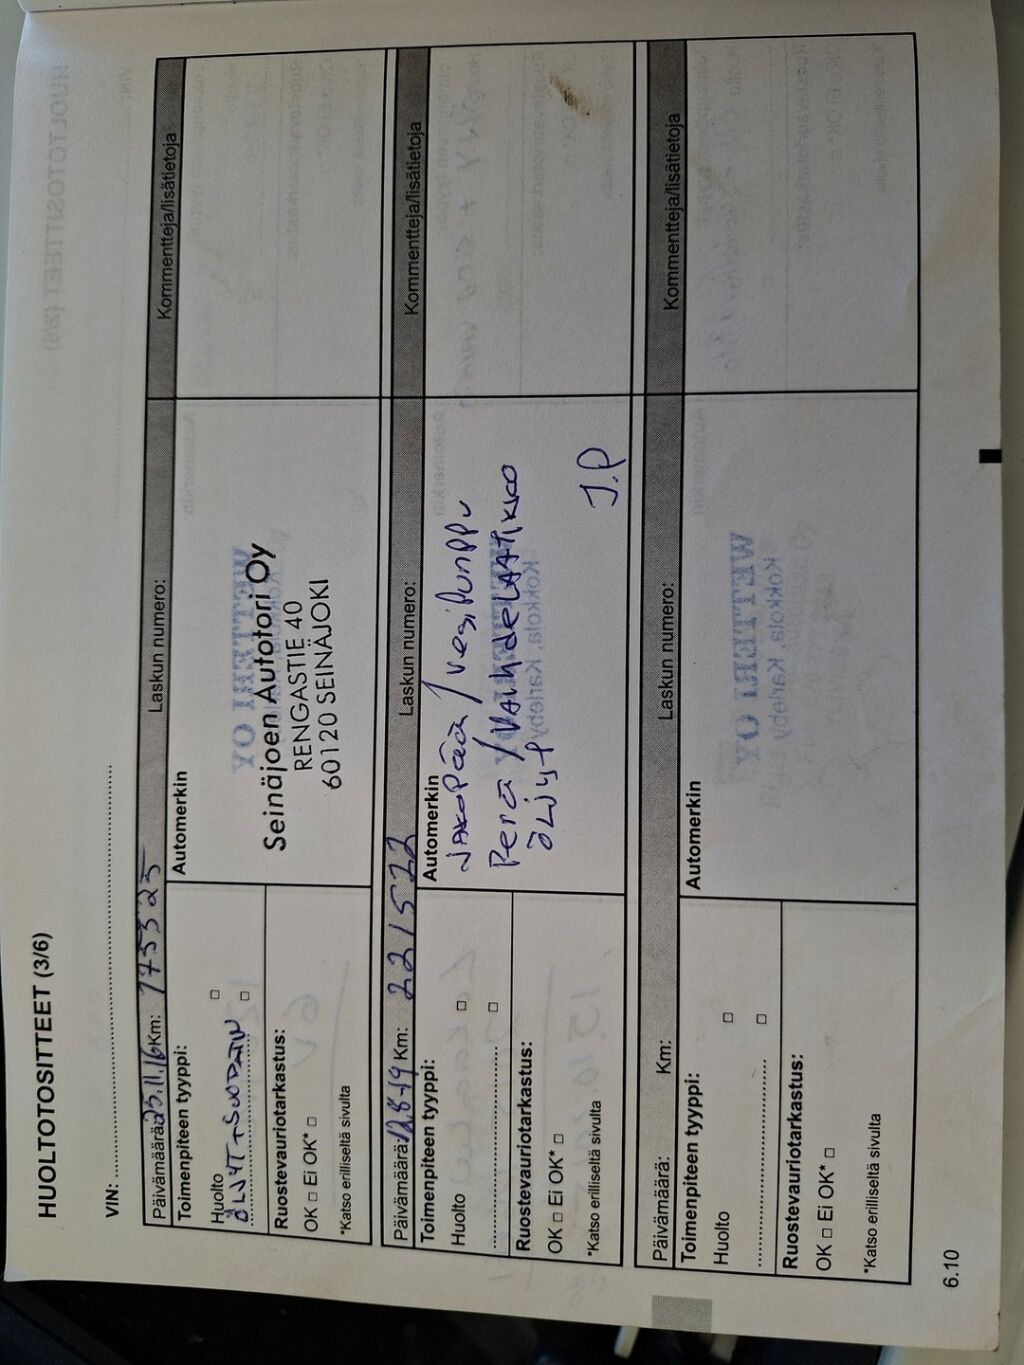 HUOLTOTOSITTEET (3/6)
VIN: ..........
Päivämäärä: 25.11.16 Km: 175325 Laskun numero: Kommentteja/lisätietoja
Toimenpiteen tyyppi:
Huolto □
ÖLJYT+SUODATIN □
Ruostevauriotarkastus:
OK □ Ei OK* □
*Katso erilliseltä sivulta
Automerkin
Seinäjoen Autotori Oy
RENGASTIE 40
60120 SEINÄJOKI
Päivämäärä: 12.8-19 Km: 221522 Laskun numero: Kommentteja/lisätietoja
Toimenpiteen tyyppi:
Huolto □
.......... □
Ruostevauriotarkastus:
OK □ Ei OK* □
*Katso erilliseltä sivulta
Automerkin
JAKOPää / Vesipumppu
Perä / VAihdeLAATIKKO
ÖLjyt
J.P
Päivämäärä: Km: Laskun numero: Kommentteja/lisätietoja
Toimenpiteen tyyppi:
Huolto □
.......... □
Ruostevauriotarkastus:
OK □ Ei OK* □
*Katso erilliseltä sivulta
Automerkin
6.10